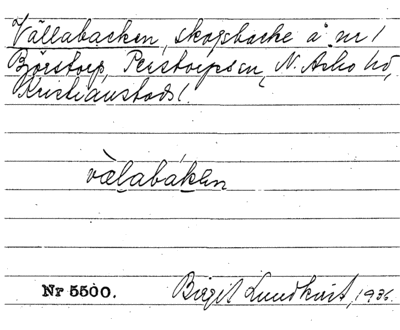 Vällabacken, skogsbacke å nr 1
Börstorp, Perstorps sn, N. Åsbo hd,
Kristianstads l.
välabákɛn
Nr 5500.
Birgit Lundkvist, 1936.